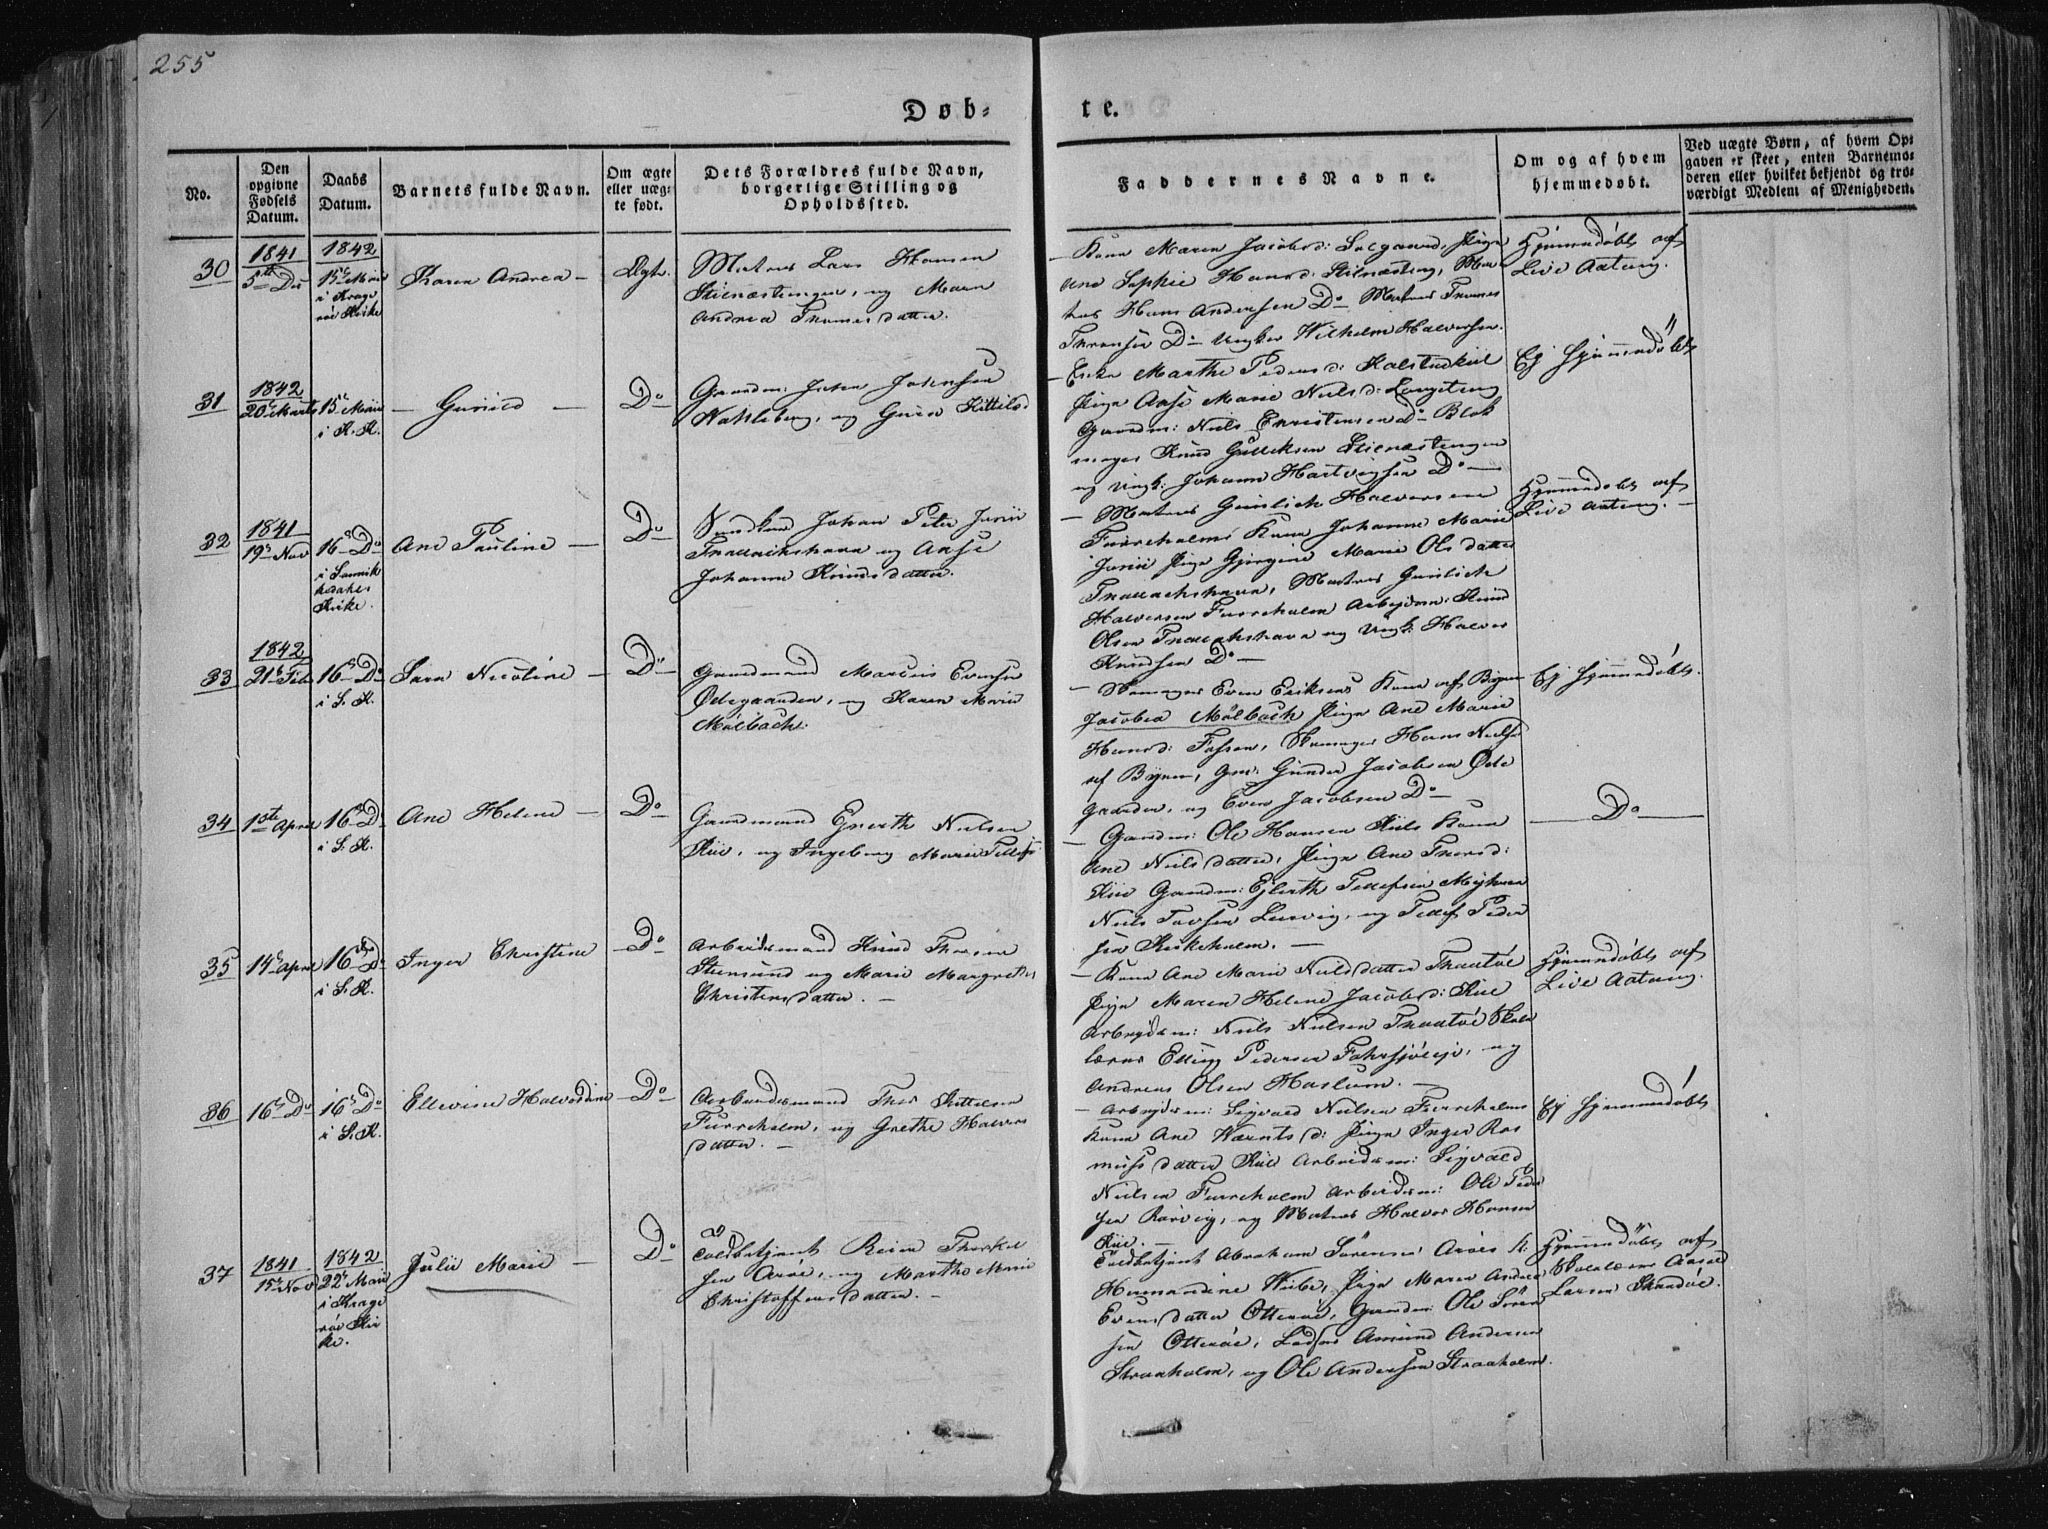 255
Døb-
te.
No.
Den
opgivne
Fødsels
Datum.
Daabs
Datum.
Barnets fulde Navn.
Om ægte
eller uæg-
te født.
Dets Forældres fulde Navn,
borgerlige Stilling og
Opholdssted.
Faddernes Navne.
Om og af hvem
hjemmedøbt.
Ved uægte Børn, af hvem Op-
gaven er skeet, enten Barnemo-
deren eller hvilket bekjendt og tro-
værdigt Medlem af Menigheden.
30
1841
5te De
1842
15de Mai
i Krage
röe Kirke
Karen Andrea
Ægte.
Matros Lars Hansen
Stienæstangen, og Maren
Andrea Thomesdatter.
Kone Maren Jacobsd: Solgaard, Pige
Ane Sophie Hansd: Stienæsteng, Ma-
tros Hans Andersen Do Matros Thomes
Do Ungkar Wilhelm Halversen.
Hjemmedöbt af
Live Aatang.
31
1842
20de Marts
15de Mai
i K. K.
Guniud
Do
Gaardm: John Johnsen
og Kittilsd
Enke Marthe Pedersd: Kalstadkiil
Pige Aase Marie Nielsd: Langetang
Gaardm: Niels Christensen Do Blok
mager Knud Gulleksen Stienæstangen
og Ungk: Johann Hartvigsen Do
Ej Hjemmedöbt
32
1841
19de Nov
16de Do
i Sannik
kedahls
Kirke.
Ane Pauline
Do
Johan Peter
og Aase
Johanne Knudsdatter.
Matros Gunlich Halversens
Furreholm Kone Johanne Marie
Pige Gjorgine Marie Olsdatter
Matros Gunlich
Halversen Furreholm Arbeidsm: Knud
Olsen og Ungk: Halvor
Knudsen Do
Hjemmedöbt af
Live Aatang.
33
1842
21de Feb
16de Do
i S. K.
Sara Nicoline
Do
Gaardmand Marcus Evensen
Ödegaarden, og Karen Marie
Mölbach.
Even Eriksens Kone af Byen
Jacobea Mölbach Pige Ane Marie
Hansd: Fossen, Hans Nielsen
af Byen, Gm: Gunder Jacobsen Öde
gaarden, og Even Jacobsen Do
Ej Hjemmedöbt.
34
1ste April
16de Do
i S. K.
Ane Helene
Do
Gaardmand Ejlerth Nielsen
Kiil, og Ingeborg Marie Tellefsd:
Gaardm: Ole Hansen Kiils Kone
Ane Nielsdatter, Pige Ane Thorsd:
Kiil Gaardm: Ejlerth Tellefsen Myhren
Niels Tovsen og Tellef Peder
sen Kirkeholm.
Do
35
14de April
16de Do
i S. K.
Inger Christine
Do
Arbeidsmand Knud
Stensund og Marie Margrethe
Christensdatter.
Kone Ane Marie Nielsdatter Traatöe
Pige Maren Helene Jacobsd: Kiil
Arbeidsm: Niels Nielsen Traatöe Skole
lærer Elling Pedersen og
Andreas Olsen Haslum.
Hjemmedöbt af
Live Aatang.
36
16de Do
16de Do
i S. K.
Ellevine Halvordine
Do
Arbeidsmand Thor Kittelsen
Furreholm, og Grethe Halvors
datter.
Arbeidsm: Sigvald Nielsen Furreholms
Kone Ane Pige Inger Ras
musdatter Kiil Arbeidsm: Sigvald
Nielsen Furreholm Arbeidsm: Ole Peder
sen Rörvig, og Matros Halvor Hansen
Kiil.
Ej Hjemmedöbt
37
1841
15de Nov
1842
22de Mai
i Krage
röe Kir
ke.
Julie Marie
Do
Toldbetjent Reier Therkel
sen Aröe, og Marthe Marie
Christoffersdatter.
Toldbetjent Abraham Sörensens Aröes K.
Hermandine Wibe, Pige Maren Andrea
Evensdatter Otteröe, Gaardm: Ole Sören
sen Otteröe, Lods Amund Andersen
Straaholm, og Ole Andersen Straaholm.
Hjemmedöbt af
Skolelærer
Larsen Skaadöe.